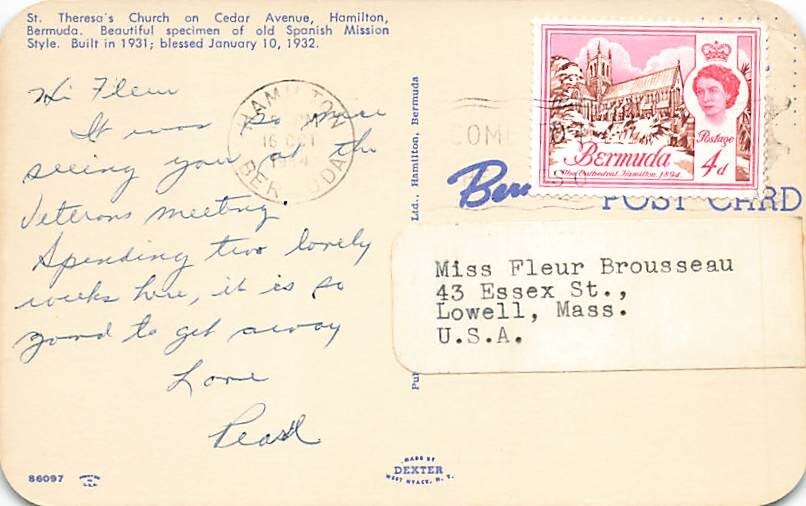 St. Theresa's Church on Cedar Avenue, Hamilton,
Bermuda. Beautiful specimen of old Spanish Mission
Style. Built in 1931; blessed January 10, 1932.
Hi Fleur
It was so nice
seeing you at the
Veterans meeting.
Spending two lovely
weeks here, it is so
good to get away
Love
Pearl
86097
MADE BY
DEXTER
WEST NYACK, N. Y.
Ltd., Hamilton, Bermuda
HAMILTON
16 OCT
BERMUDA
COME
Postage
Bermuda
4d
The Cathedral, Hamilton, 1894
POST CARD
Miss Fleur Brousseau
43 Essex St.,
Lowell, Mass.
U.S.A.